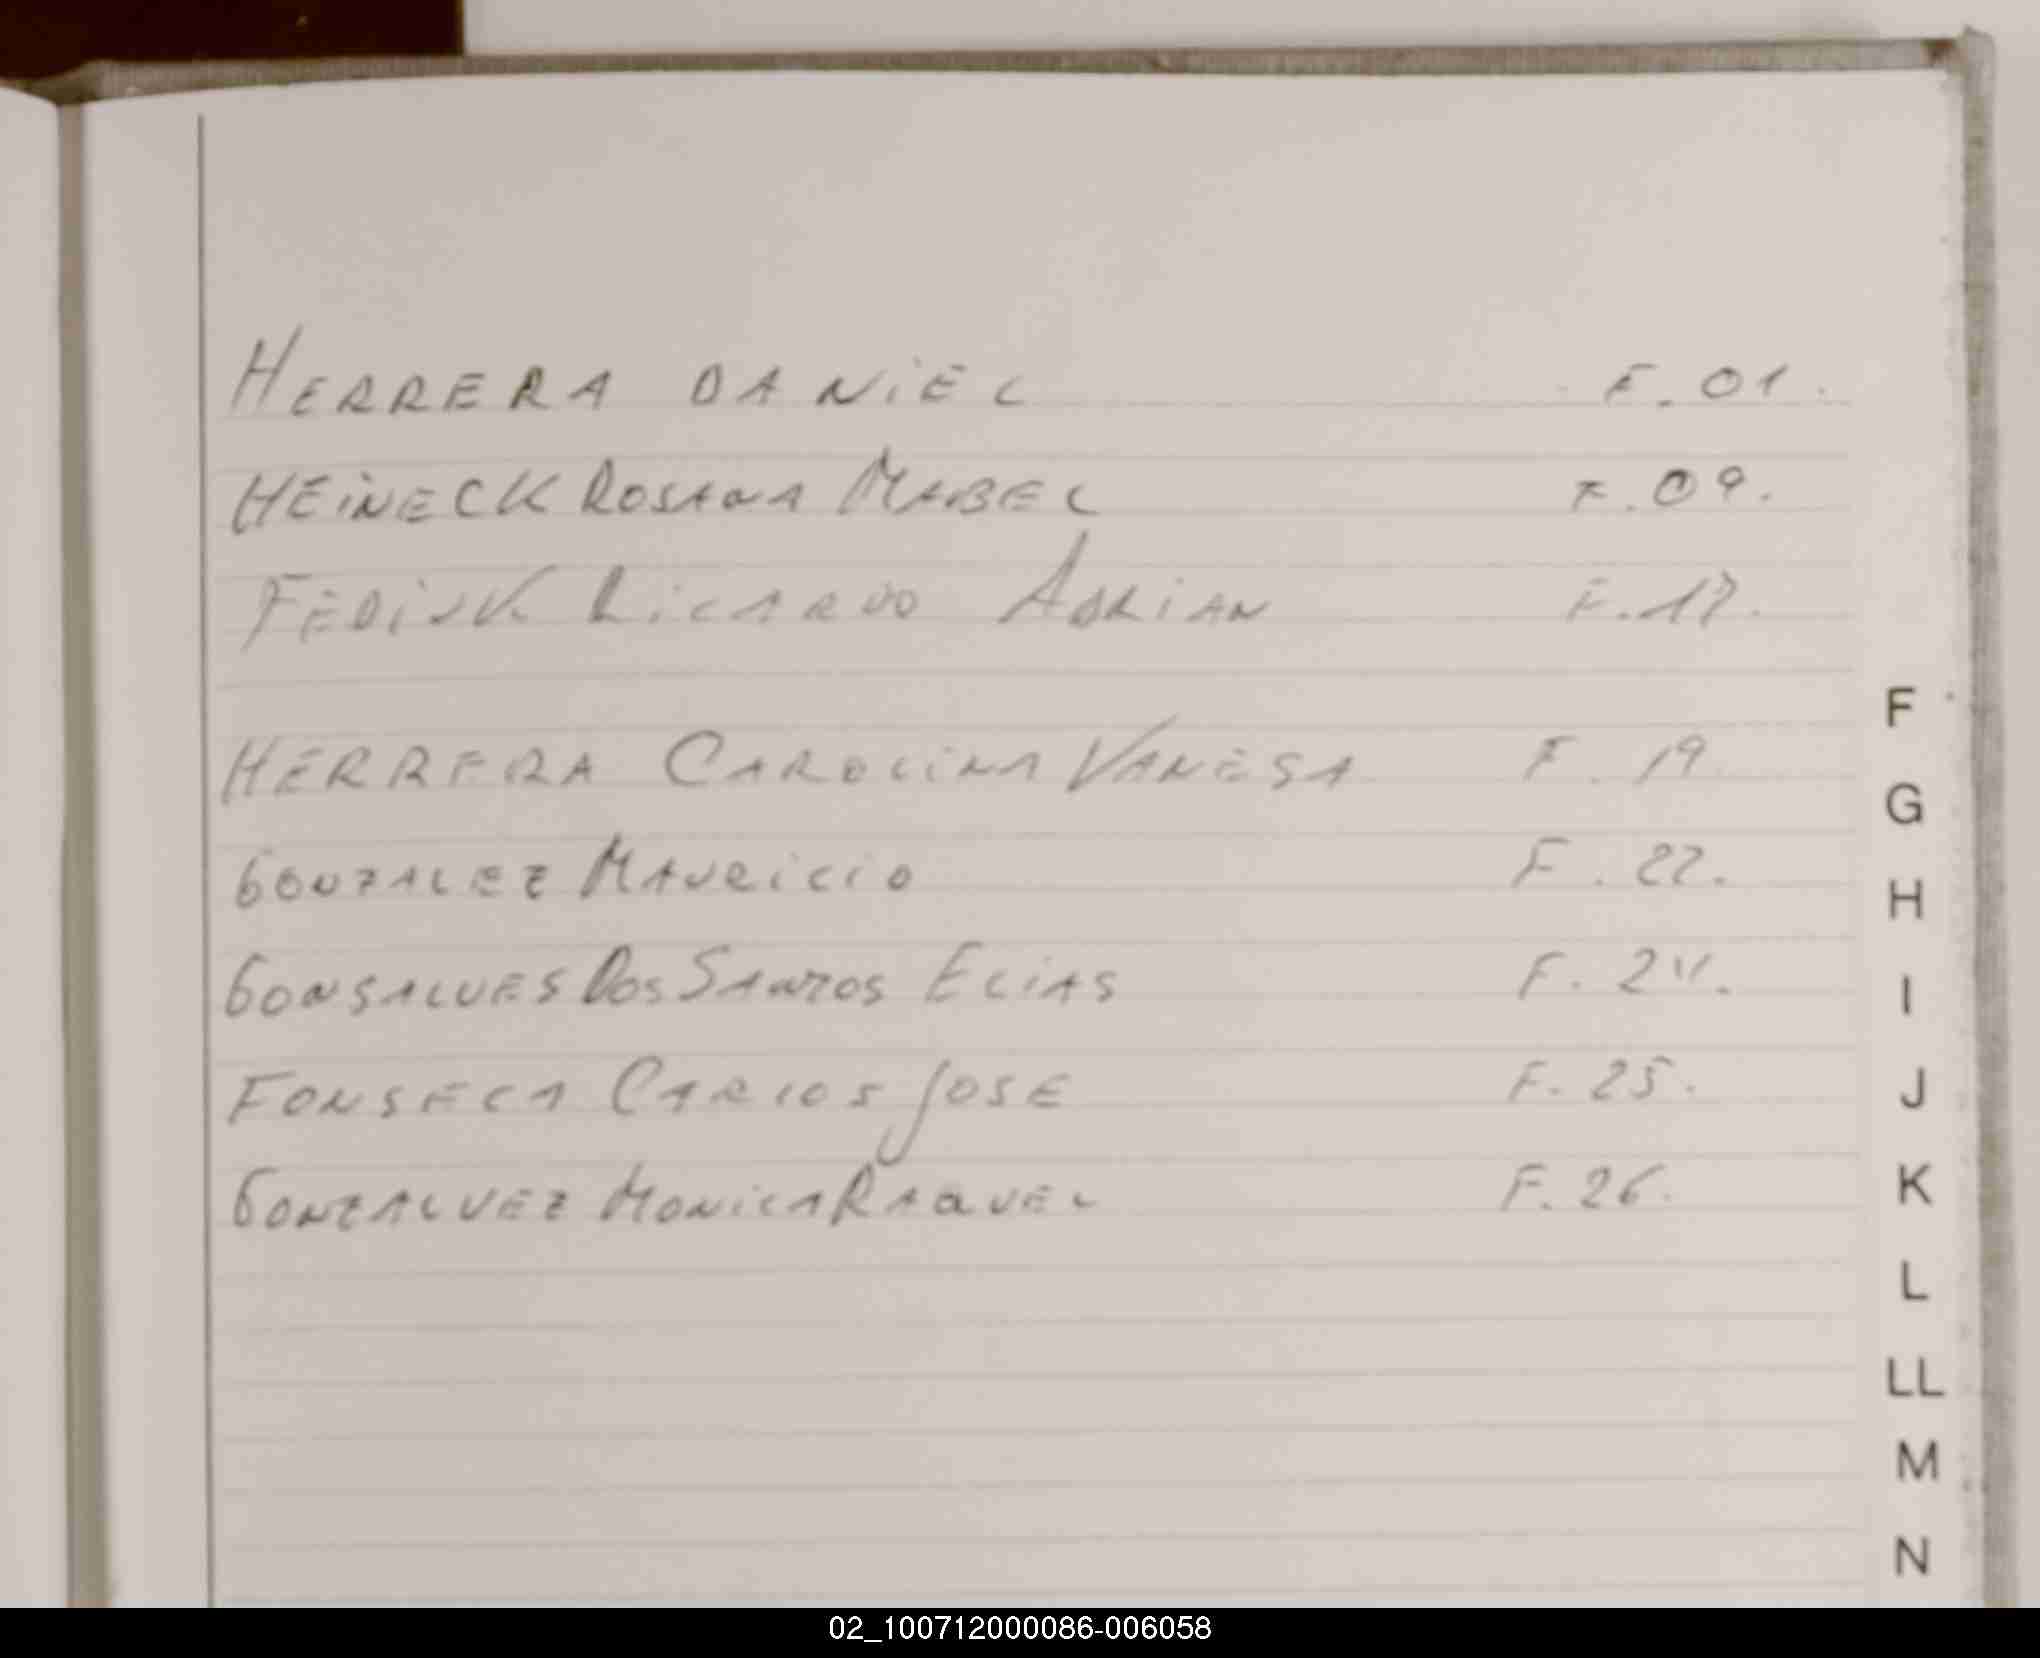 HERRERA DANIEL F. 01.
HEINECK ROSANA MABEL F. 09.
FEDISK RICARDO ADRIAN F. 17.
HERRERA CAROLINA VANESA F. 19
GONZALEZ MAURICIO F. 22.
GONSALVES DOS SANTOS ELIAS F. 24.
FONSECA CARLOS JOSE F. 25.
GONZALVEZ MONICA RAQUEL F. 26.
F
G
H
I
J
K
L
LL
M
N
02_100712000086-006058